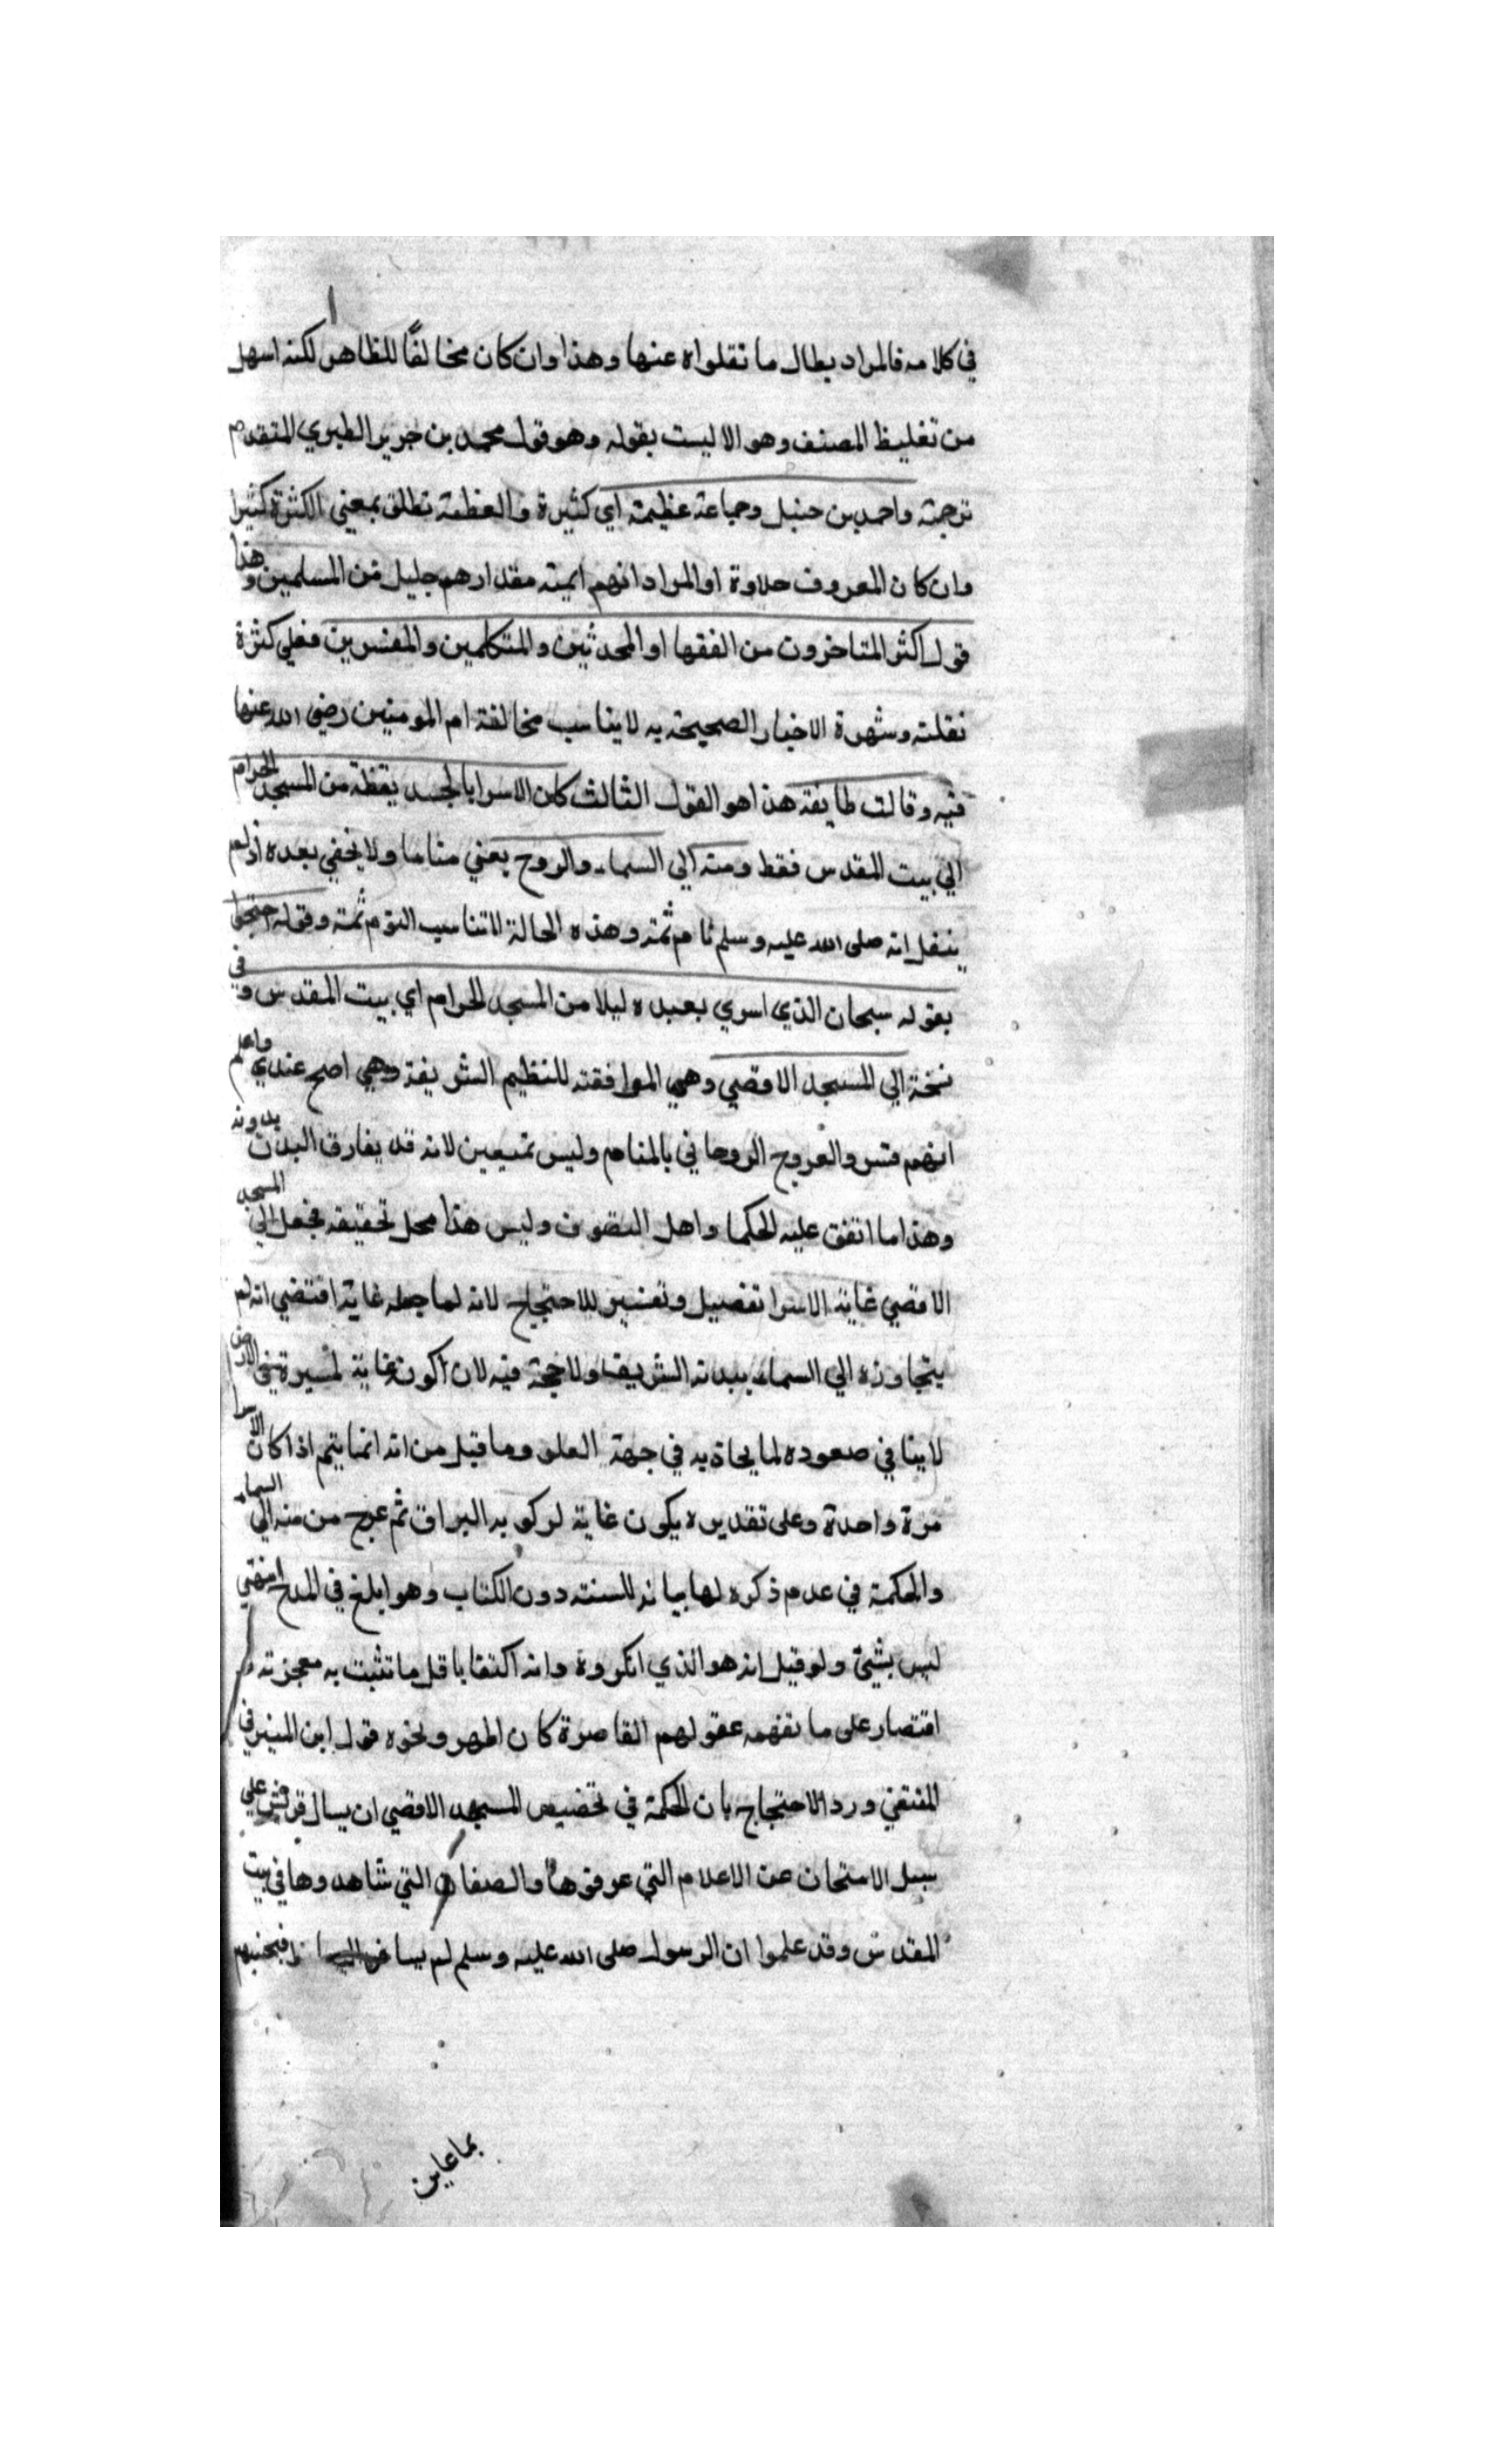 في كلامه فالمراد بطال ما نقلواه عنها وهذا وان كان مخالفًا للظاهر لكنه اسهل
من تغليظ المصنف وهو الاليست بقوله وهو قول محمد بن جرير الطبري المتقدم
ترجمته واحمد بن حنبل وجماعة عظيمة اي كثيرة والعظمة تطلق بمعني الكثرة كثيرا
وان كان المعروف حلاوة او المراد انهم ايمة مقدارهم جليل من المسلمين وهذا
قول اكثر المتاخرون من الفقها او المحدثين والمتكلمين والمفسرين فعلي كثرة
نقلته وشهرة الاخبار الصحيحة به لا يناسب مخالفة ام المومنين رضي الله عنها
فيه وقالت طايفة هذا هو القول الثالث كان الاسرا بالجسد يقظة من المسجد الحرام
الي بيت المقدس فقط ومنه الي السماء والروح يعني مناما ولا يخفي بعده اذ لم
ينقل انه صلى الله عليه وسلم نام ثمة وهذه الحالة لاتناسب النوم ثمة وقوله احتجوا
بقوله سبحان الذي اسري بعبده ليلا من المسجد الحرام اي بيت المقدس وفي
نخة الي المسجد الاقصي وهي الموافقة للنظيم الشريفة وهي اصح عندي واعلم
انهم فسر والعروج الروحاني بالمنام وليس تمتعين لانه قد يفارق البدن بدونه
وهذا ما اتفق عليه الحكما واهل التصوف وليس هذا محل تحقيقه فجعل الي المسجد
الاقصي غاية الاسرا تفصيل وتفسير للاحتجاج لانه لما جعله غاية اقتضي انه لم
يتجاوزه الي السماء ببدنه الشريف ولا حجة فيه لان اكونه غاية لمسيرة في الارض
لاينا في صعوده لما يحاذيه في جهة العلو وما قيل من انه انما يتم اذا كان الاسرا
مرة واحدة وعلى تقديره يكون غاية لركوبه البراق ثم عرج من منه الي السماء
والحكمة في عدم ذكره لها بيانه للسنة دون الكتاب وهو ابلغ في المدح انتهي
ليس بشيئ ولو قيل انه هو الذي انكروة وانه اكتفا باقل ما تثبت به معجزته
اقتصار على ما تفهمه عقولهم القاصرة كان اظهر ونحوه قول ابن المنير في
المقتفي ورد الاحتجاج بان الحكمة في تخصيص المسجد الاقصي ان يسال قريش علي
سبيل الامتحان عن الاعلام التي عرفوها والصفات التي شاهدوها في بيت
المقدس وقد علموا ان الرسول صلى الله عليه وسلم لم يسافر فيجيبهم
بما عاين